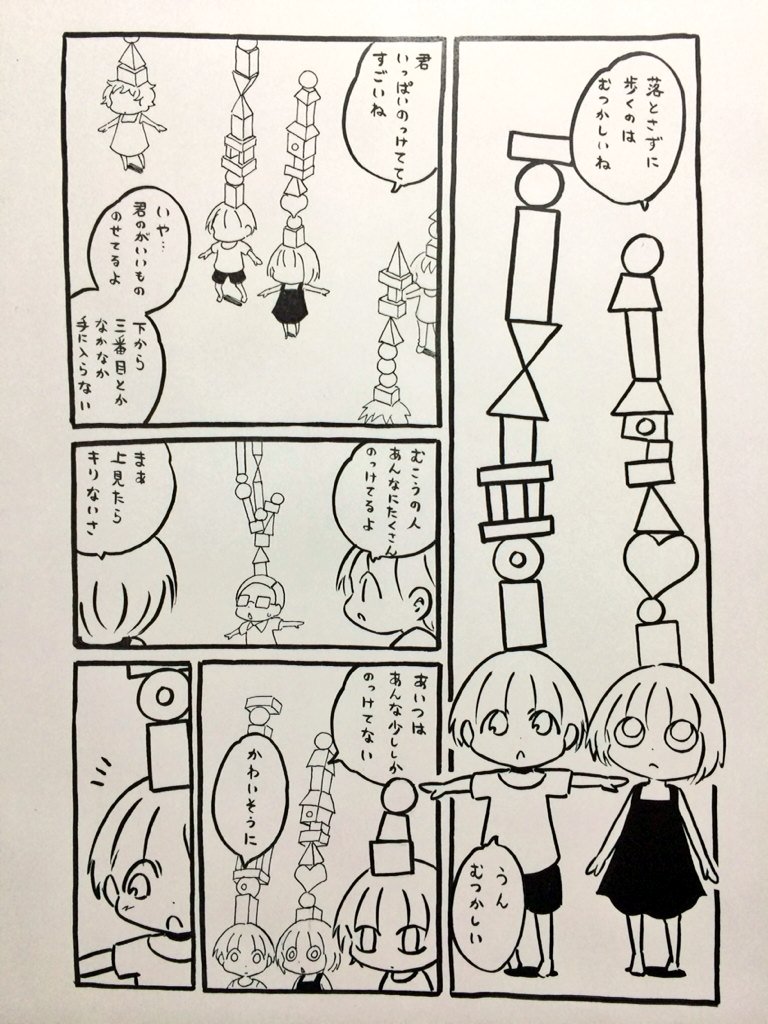 落とさずに
歩くのは
むつかしいね
うん
むつかしい
君
いっぱいのっけてて
すごいね
いや…
君のがいいもの
のせてるよ
下から
三番目とか
なかなか
手に入らない
むこうの人
あんなにたくさん
のっけてるよ
まあ
上見たら
キリないさ
あいつは
あんな少ししか
のっけてない
かわいそうに